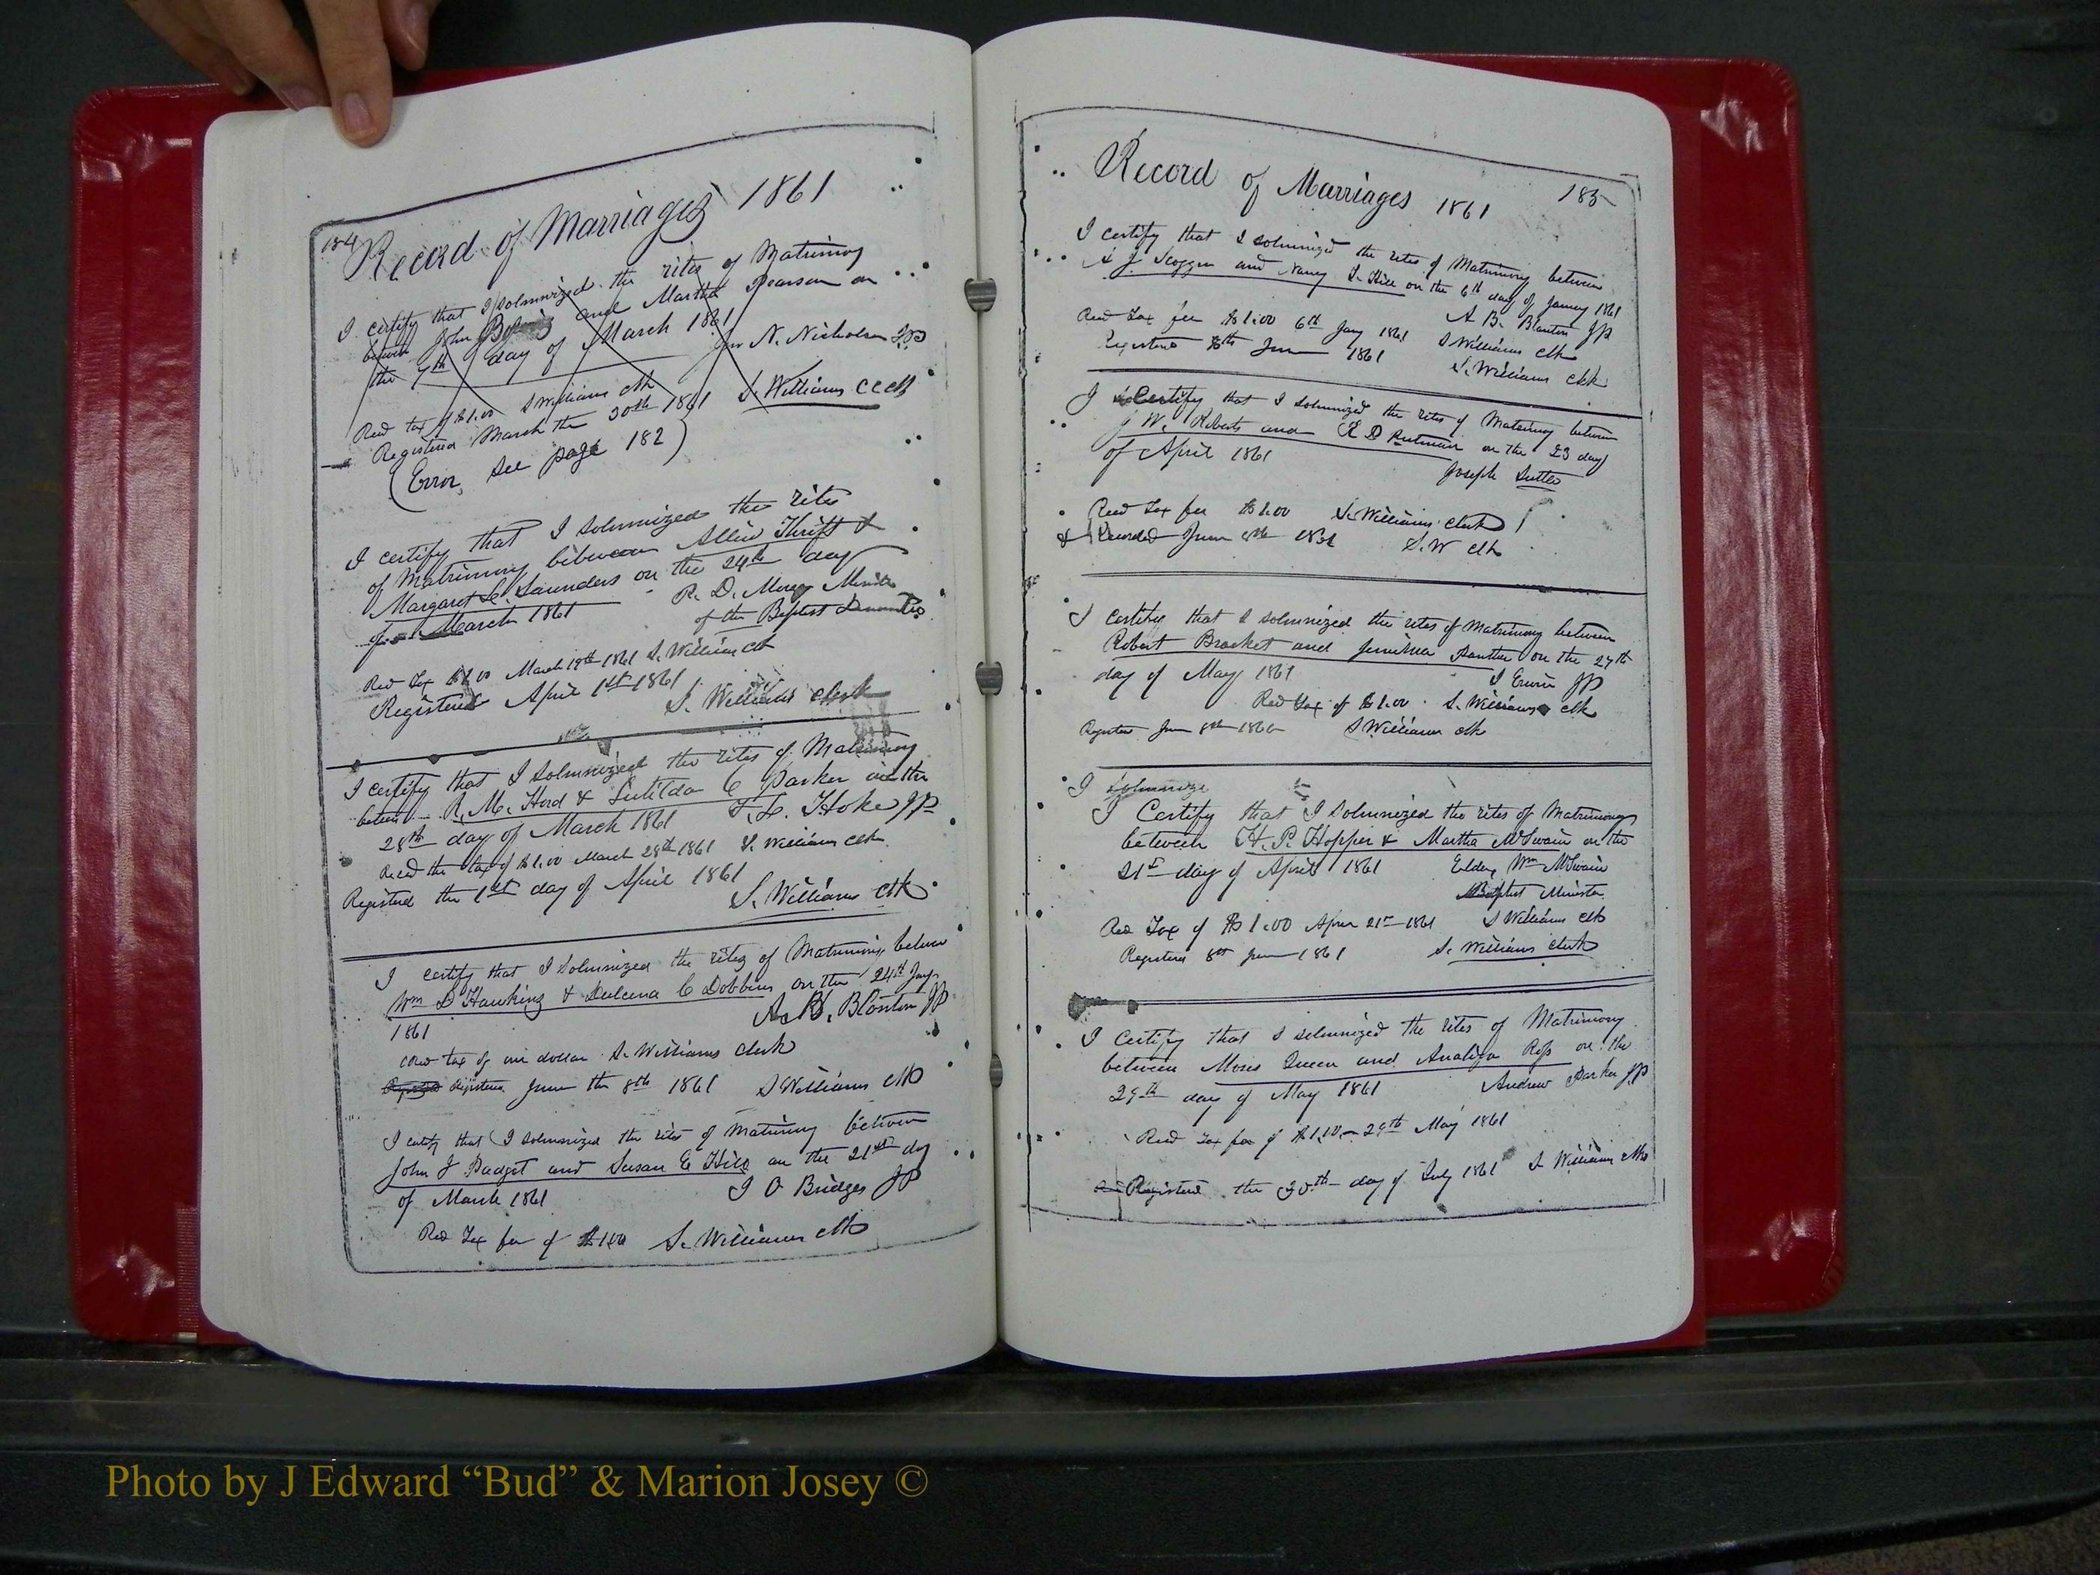 184 Record of Marriages 1861
I certify that I Solumnized the rites of Matrimony
between John and Martha Pearson on
the 7th day of March 1861
N. Nicholson J.P
Recd tax of $1.00 S Williams clk
Registered March the 30th 1861 S. Williams CCClk
(Error, See page 182)
I certify that I Solumnized the rites
of Matrimony between Allen Thrift &
Margaret Saunders on the 24th day
of March 1861 R. D. Minister
of the Baptist
Recd Tax $1.00 March 19th 1861 S. Williams Clk
Registered April 1st 1861
S. Williams clerk
I certify that I Solumnized the rites of Matrimony
between R. M. Hord & C Parker on the
28th day of March 1861 Hoke JP
Recd the tax of $1.00 March 28th 1861 S. Williams clk
Registered the 1st day of April 1861
S. Williams Clk
I certify that I Solumnized the rites of Matrimony between
Wm D Hawkins & Dulcena C Dobbins on the 24th Jany
1861 A. B. Blanton JP
Recd tax of one dollar S. Williams clerk
Registered June the 8th 1861 S Williams Clk
I certify that I Solumnized the rites of Matrimony between
John J Padget and Susan E Hill on the 21st day
of March 1861 J O Bridges JP
Recd Tax fee of $1.00 S. Williams Clk
Record of Marriages 1861 185
I certify that I solumnized the rites of Matrimony between
A J Scoggin and Nancy S. Hill on the 6th day of January 1861
A B. Blanton JP
Recd Tax fee $1.00 6th Jany 1861 S Williams clk
Registered 8th June 1861 S. Williams clk
I Certify that I Solumnized the rites of Matrimony between
J W. Roberts and on the 23 day
of April 1861 Joseph Suttle
Recd Tax fee $1.00 S. Williams clerk
& Recorded June 8th S. W clk
I certify that I solumnized the rites of Matrimony between
Robert Bracket and Jemima Panther on the 27th
day of May 1861 S Erwin JP
Recd tax of $1.00 S. Williams clk
Registered June 8th S Williams clk
I Solumnize
I Certify that I Solumnized the rites of Matrimony
between H. P. Hopper & Martha McSwain on the
21st day of April 1861 Elder Wm McSwain
Baptist Minister
Recd Tax of $1.00 April 21st 1861 S Williams clk
Registered 8th June 1861 S. Williams clerk
I Certify that I solumnized the rites of Matrimony
between Moses Queen and Analiza Ross on the
29th day of May 1861 Andrew Parker J.P
Recd Tax fee of $1.00 29th May 1861
Registered the 30th day of July 1861 S Williams clk
Photo by J Edward “Bud” & Marion Josey ©